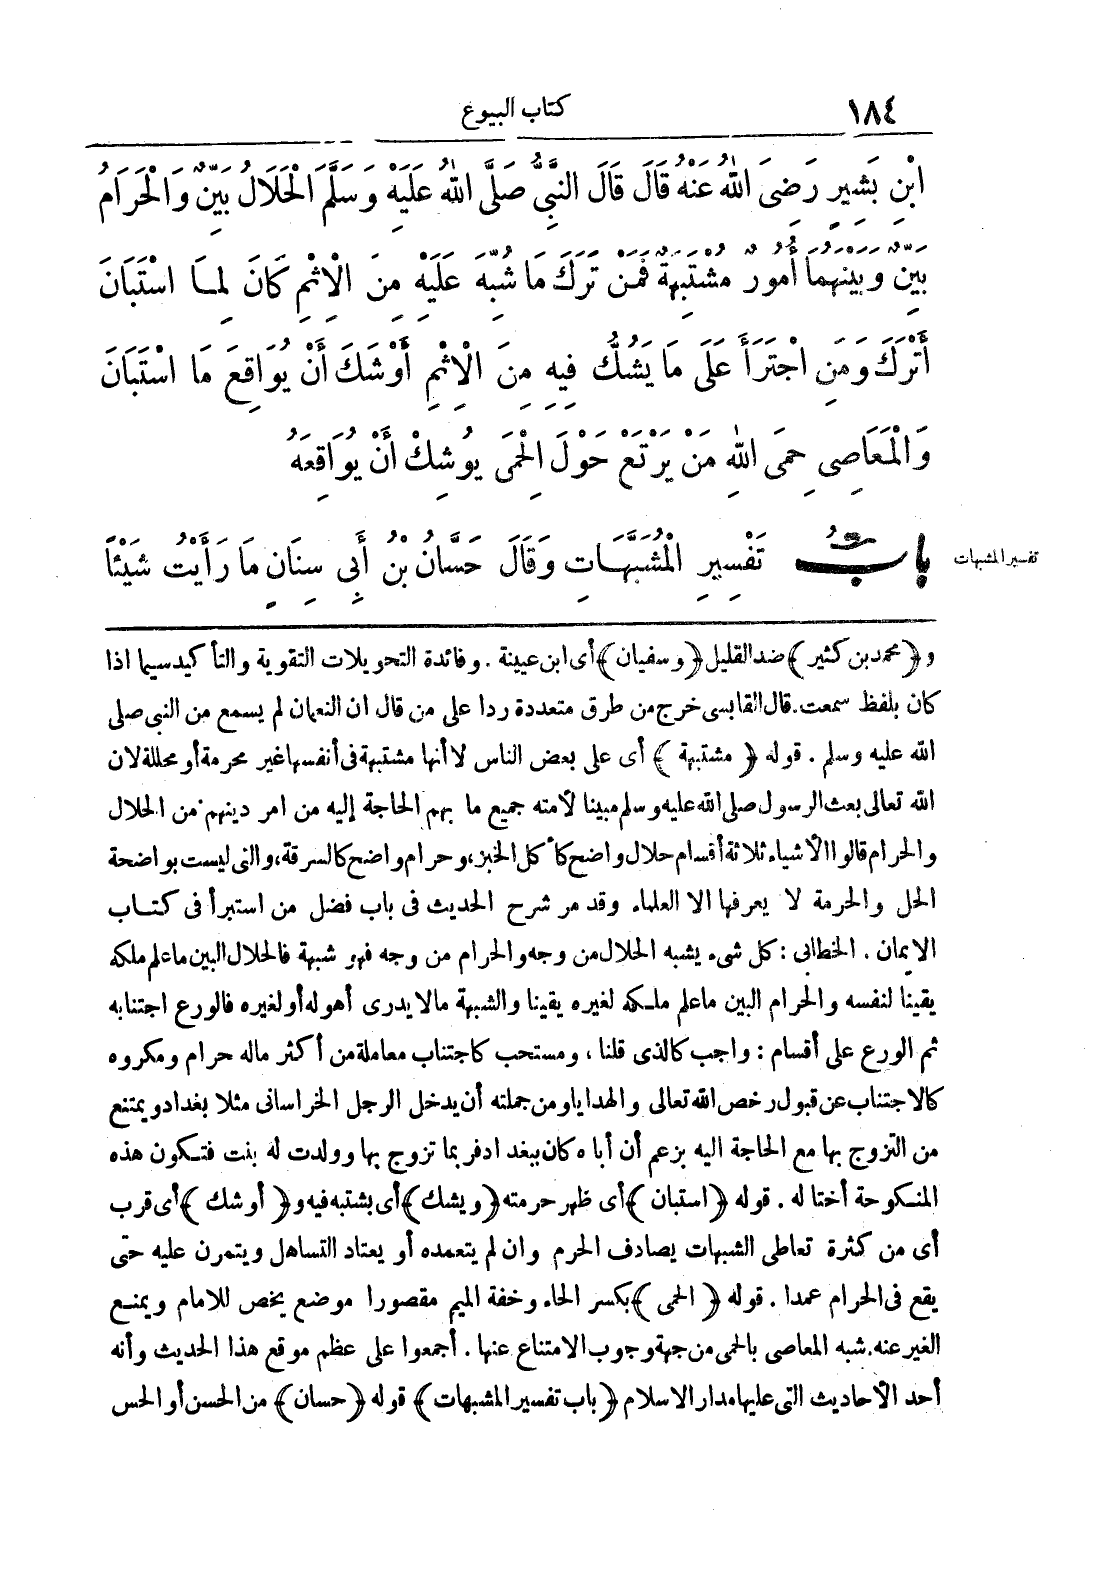 ١٨٤
كتاب البيوع
ابْنِ بَشِيرٍ رَضِىَ اللهُ عَنْهُ قَالَ قَالَ النَّبِىُّ صَلَّى اللهُ عَلَيْهِ وَسَلَّمَ الْحَلَالُ بَيِّنٌ وَالْحَرَامُ
بَيِّنٌ وَبَيْنَهُمَا أُمُورٌ مُشْتَبِهَةٌ فَمَنْ تَرَكَ مَا شُبِّهَ عَلَيْهِ مِنَ الْإِثْمِ كَانَ لِمَا اسْتَبَانَ
أَتْرَكَ وَمَنِ اجْتَرَأَ عَلَى مَا يَشُكُّ فِيهِ مِنَ الْإِثْمِ أَوْشَكَ أَنْ يُوَاقِعَ مَا اسْتَبَانَ
وَالْمَعَاصِى حِمَى اللهِ مَنْ يَرْتَعْ حَوْلَ الْحِمَى يُوشِكْ أَنْ يُوَاقِعَهُ
بابُ تَفْسِيرِ الْمُشَبَّهَاتِ وَقَالَ حَسَّانُ بْنُ أَبِى سِنَانٍ مَا رَأَيْتُ شَيْئًا
تفسير المشبهات
و﴿محمد بن كثير﴾ ضد القليل ﴿وسفيان﴾ أى ابن عيينة . وفائدة التحويلات التقوية والتأكيد سيما اذا
كان بلفظ سمعت. قال القابسى خرج من طرق متعددة ردا على من قال ان النعمان لم يسمع من النبى صلى
الله عليه وسلم . قوله ﴿مشتبهة﴾ أى على بعض الناس لا أنها مشتبهة فى أنفسها غير محرمة أو محللة لان
الله تعالى بعث الرسول صلى الله عليه وسلم مبينا لأمته جميع ما بهم الحاجة إليه من امر دينهم من الحلال
والحرام قالوا الأشياء ثلاثة أقسام حلال واضح كأكل الخبز، وحرام واضح كالسرقة، والتى ليست بواضحة
الحل والحرمة لا يعرفها الا العلماء وقد مر شرح الحديث فى باب فضل من استبرأ فى كتاب
الايمان . الخطابى : كل شىء يشبه الحلال من وجه والحرام من وجه فهو شبهة فالحلال البين ما علم ملكه
يقينا لنفسه والحرام البين ما علم ملكه لغيره يقينا والشبهة ما لا يدرى أهو له أو لغيره فالورع اجتنابه
ثم الورع على أقسام : واجب كالذى قلنا ، ومستحب كاجتناب معاملة من أكثر ماله حرام ومكروه
كالاجتناب عن قبول رخص الله تعالى والهدايا ومن جملته أن يدخل الرجل الخراسانى مثلا بغداد ويمتنع
من التزوج بها مع الحاجة اليه بزعم أن أباه كان ببغداد فربما تزوج بها وولدت له بنت فتكون هذه
المنكوحة أختا له . قوله ﴿استبان﴾ أى ظهر حرمته ﴿ويشك﴾ أى يشتبه فيه و﴿أوشك﴾ أى قرب
أى من كثرة تعاطى الشبهات يصادف الحرم وان لم يتعمده أو يعتاد التساهل ويتمرن عليه حتى
يقع فى الحرام عمدا . قوله ﴿الحمى﴾ بكسر الحاء وخفة الميم مقصورا موضع يخص للامام ويمنع
الغير عنه. شبه المعاصى بالحمى من جهة وجوب الامتناع عنها . أجمعوا على عظم موقع هذا الحديث وأنه
أحد الأحاديث التى عليها مدار الاسلام ﴿باب تفسير المشبهات﴾ قوله ﴿حسان﴾ من الحسن أو الحس